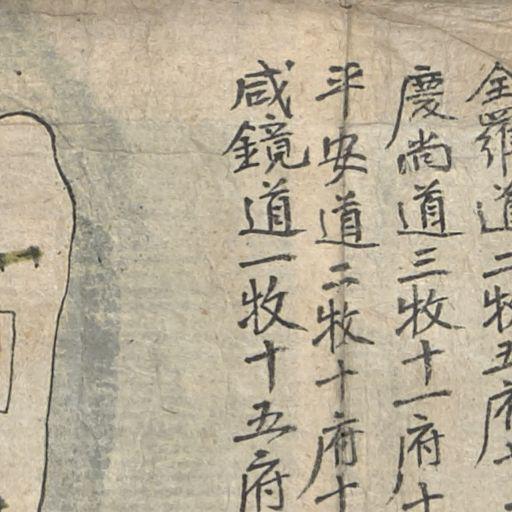 全羅道二牧五府
慶尚道三牧十一府十
平安道二牧十府十
咸鏡道一牧十五府